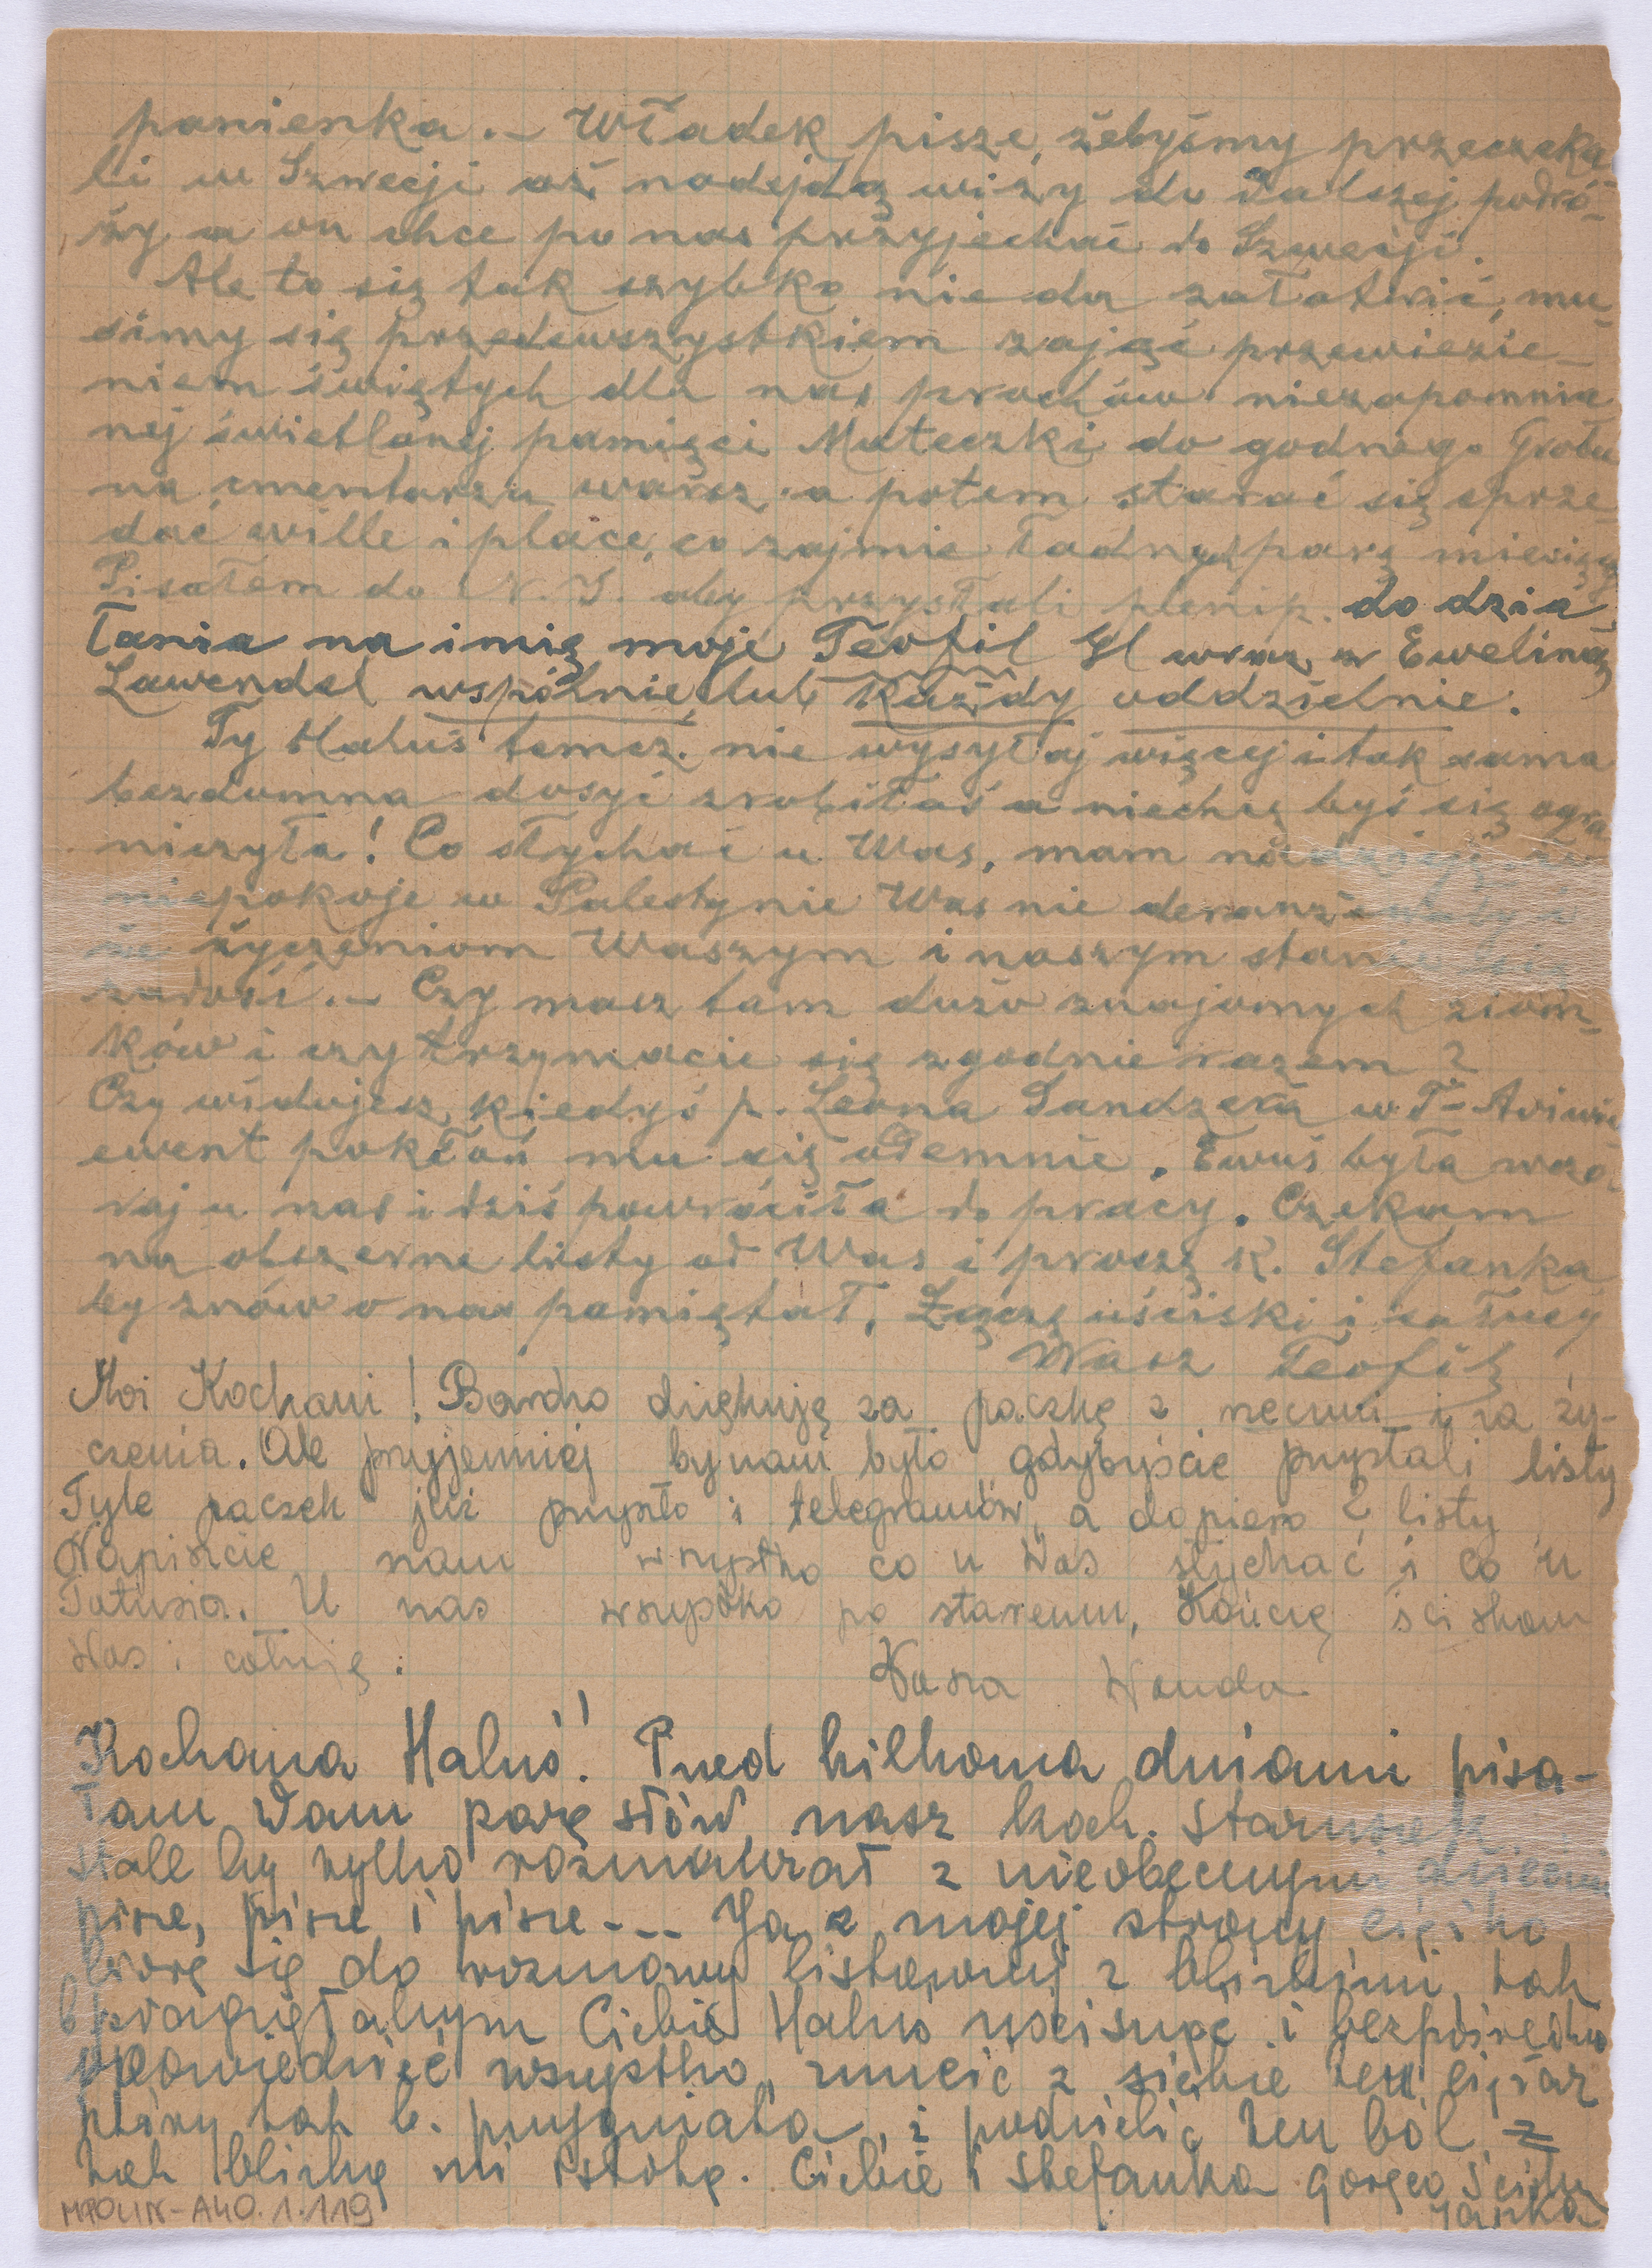 panienka. – Władek pisze, żebyśmy przeczeka-
li w Szwecji aż nadejdą wizy do dalszej podró-
ży a on chce po nas przyjechać do Szwecji.
Ale to się tak szybko nie da załatwić, mu-
simy się przedewszystkiem zająć przewiezie-
niem świętych dla nas prochów niezapomnia
nej świetlanej pamięci Mateczki do godnego Grobu
na cmentarzu warsz. a potem starać się sprze-
dać wille i place, co zajmie ładnych parę miesięcy
Pisałem do N.Y. aby przysłali plenip. do dzia-
łania na imię moje Teofil Gl wraz z Eweliną
Lawendel wspólnie lub każdy oddzielnie.
Ty Haluś tamcz. nie wysyłaj więcej i tak sama
bezdomna dosyć zrobiłaś a niechcę byś się ogra
niczyła! Co słychać u Was, mam nadzieję że
niepokoje w Palestynie Was nie
że życzeniom Waszym i naszym stanie się
zadość. – Czy masz tam dużo znajomych ziom-
ków i czy trzymacie się zgodnie razem?
Czy widujesz kiedyś p. Leona Sandzera w T- Aviwie
ewent pokłoń mu się odemnie. Ewuś była wczo-
raj u nas i dziś powróciła do pracy. Czekam
na obszerne listy od Was i proszę k. Stefanka
by znów o nas pamiętał, Łączę uściski i całusy
Wasz Teofil
Moi Kochani! Bardzo dziękuję za paczkę z rzeczmi i za ży-
czenia. Ale przyjemniej by nam było gdybyście przysłali listy
Tyle paczek już przyszło i telegramów, a dopiero 2 listy
Napiszcie nam wszystko co u Was słychać i co u
Tatusia. U nas wszystko po staremu, Kończę ściskam
Was i całuję.
Wasza Wanda
Kochana Haluś! Przed kilkoma dniami pisa-
łam Wam parę słów nasz koch. staruszek
stale by tylko rozmawiał z nieobecnymi dziećmi
pisze, pisze i pisze --- Ja z mojej strony ciężko
biorę się do rozmowy listownej z bliskimi, tak
pragnęłabym Ciebie Haluś uścisnąć i bezpośrednio
opowiedzieć wszystko, zrzucić z siebie ten ciężar
który tak b. przygniata, i podzielić ten ból z
tak bliską mi istotą. Ciebie i Stefanka gorąco ścisk
Janka
MPOLIN-A40.1.119